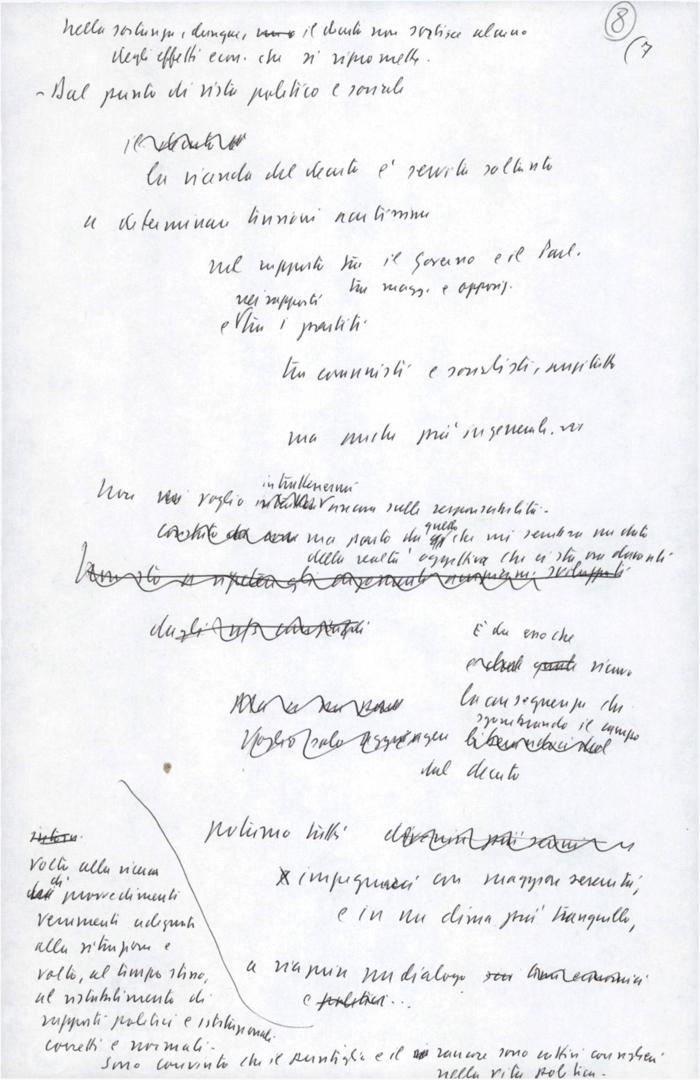 8
(7
Nella sostanza, dunque, il decreto non sortisce alcuno
degli effetti econ. che si ripromette.
- Dal punto di vista politico e sociale
il decreto
la vicenda del decreto è servita soltanto
a determinare tensioni nocitissime
nel rapporto tra il Governo e il Parl.
tra magg. e opposiz.
nei rapporti
e tra i partiti
tra comunisti e socialisti, anzitutto
ma anche più in generale.
intrattenermi
Non voglio ancora sulle responsabilità.
quello
ma parto da che mi sembra un dato
della realtà oggettiva che ci sta ora davanti
sviluppati
degli
È da ciò che
ricavo
la conseguenza che
sgombrando il campo
Voglio solo aggiungere
dal decreto
potremo tutti
impegnarci con maggiore serenità,
e in un clima più tranquillo,
a riaprire un dialogo
e politici...
volto alla ricerca
di
provvedimenti
veramente adeguati
alla situazione e
volto, al tempo stesso,
al ristabilimento di
rapporti politici e istituzionali
corretti e normali.
Sono convinto che il puntiglio e il rancore sono cattivi consiglieri
nella vita politica.